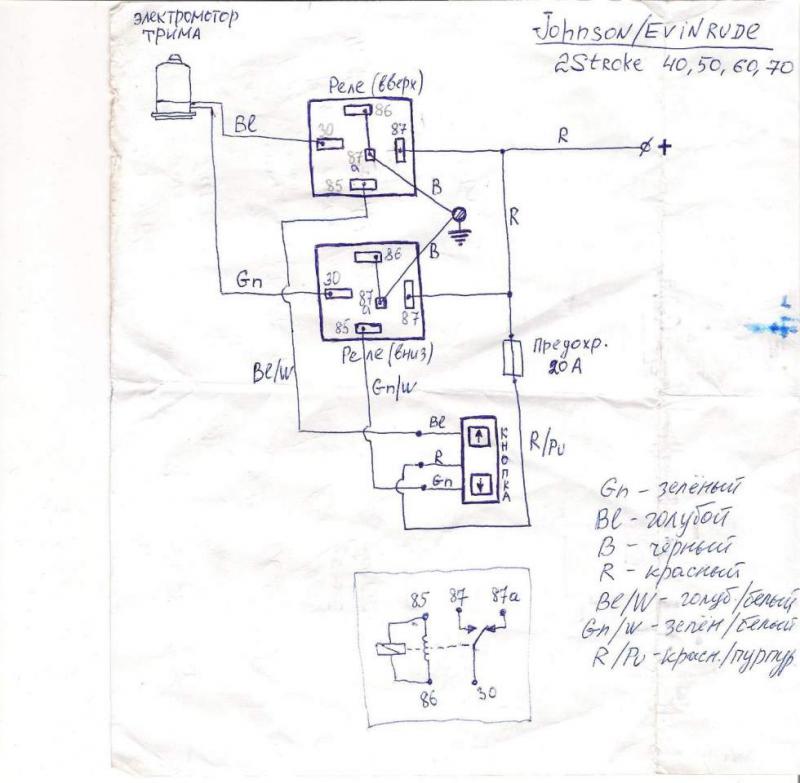 электромотор
трима
Johnson/EVINRUDE
2Stroke 40,50,60,70
Реле (вверх)
86
30
87
87
a
85
Bl
R
+
B
R
B
86
30
87
a
87
85
Gn
Реле (вниз)
Предохр.
20A
Bl/W
Gn/W
R/Pu
Bl
R
Gn
КНОПКА
Gn - зелёный
Bl - голубой
B - чёрный
R - красный
Bl/W - голуб/белый
Gn/w - зелён/белый
R/Pu - красн./пурпур
85
87
87a
86
30